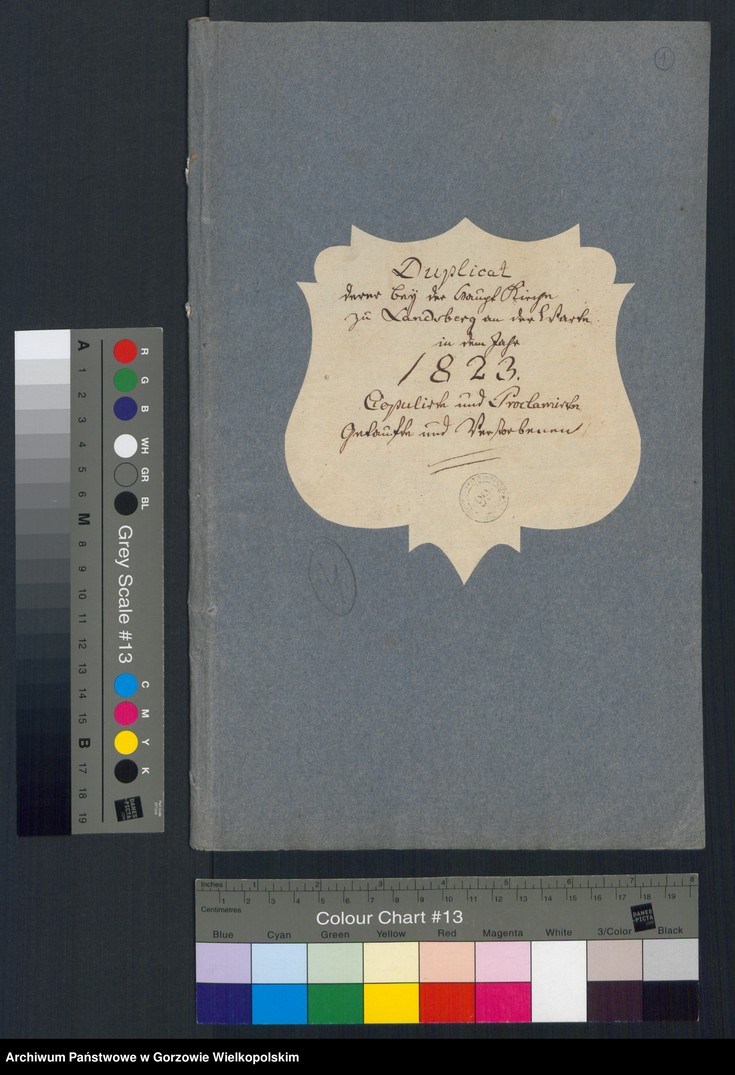 1
Duplicat
derer bey der Haupt Kirche
zu Landsberg an der Warte
in dem Jahr
1823.
Copulirte und Proclamirte
Getaufte und Verstorbenen
A 1 2 3 4 5 6 M 8 9 10 11 12 13 14 15 B 17 18 19
R G B WH GR BL
Grey Scale #13
C M Y K
DANES
PICTA
Inches 1 2 3 4 5 6 7 8
1 2 3 4 5 6 7 8 9 10 11 12 13 14 15 16 17 18 19
Centimetres
Colour Chart #13
DANES
PICTA
Blue Cyan Green Yellow Red Magenta White 3/Color Black
Archiwum Państwowe w Gorzowie Wielkopolskim